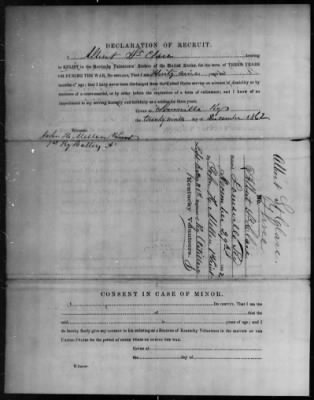 DECLARATION OF RECRUIT.
I, Albert W. Clare, desiring
to ENLIST in the Kentucky Volunteers' Service of the United States, for the term of THREE YEARS
OR DURING THE WAR, Do declare, That I am thirty nine years
months of age; that I have never been discharged from the United States service on account of disability or by
sentence of a court-martial, or by order before the expiration of a term of enlistment; and I know of no
impediment to my serving honestly and faithfully as a soldier for three years.
Given at Louisville Ky
the twenty ninth day of December 1862
Witness:
John H. Mellen
Ky Battery A
Albert S. Clare
No.
Albert W. Clare
Louisville Ky
December 29 1862
John H. Mellen
Regiment of Ky Artillery
Kentucky Volunteers.
CONSENT IN CASE OF MINOR.
I, Do certify, That I am the
of that the
said is years of age; and I
do hereby freely give my consent to his enlisting as a Soldier of Kentucky Volunteers in the SERVICE OF THE
UNITED STATES for the period of THREE YEARS OR DURING THE WAR.
Given at
the day of
Witness: